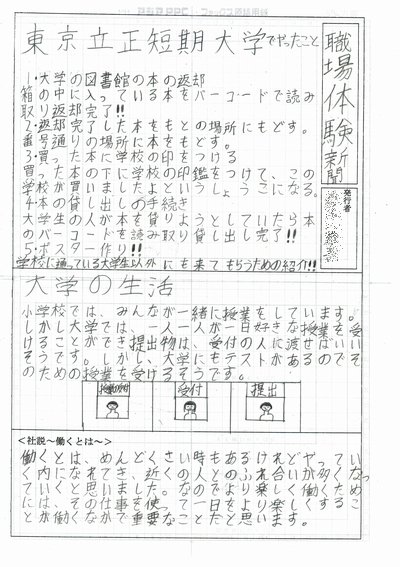 職場体験新聞
発行者
東京立正短期大学でやったこと
1・大学の図書館の本の返却
箱の中に入っている本をバーコードで読み
取り返却完了!!
2・返却完了した本をもとの場所にもどす。
番号通りの場所に本をもどす。
3・買った本に学校の印をつける
買った本の下に学校の印鑑をつけて、この
学校が買いましたよというしょうこになる。
4・本の貸し出しの手続き
大学生の人が本を借りようとしていたら本
のバーコードを読み取り貸し出し完了!!
5・ポスター作り!!
学校に通っている大学生以外にも来てもらうための紹介!!
大学の生活
小学校では、みんなが一緒に授業をしています。
しかし大学では、一人一人が一日好きな授業を受
けることができ提出物は、受付の人に渡せばいい
そうです。しかし、大学にもテストがあるのでそ
のための授業を受けるそうです。
受付
提出
<社説～働くとは～>
働くとは、めんどくさい時もあるけれどやってい
く内になれてき、近くの人とのふれ合いが多くなっ
ていくと思いました。なのでより楽しく働くため
には、その仕事を使って一日をより楽しくするこ
とが働くなかで重要なことだと思います。